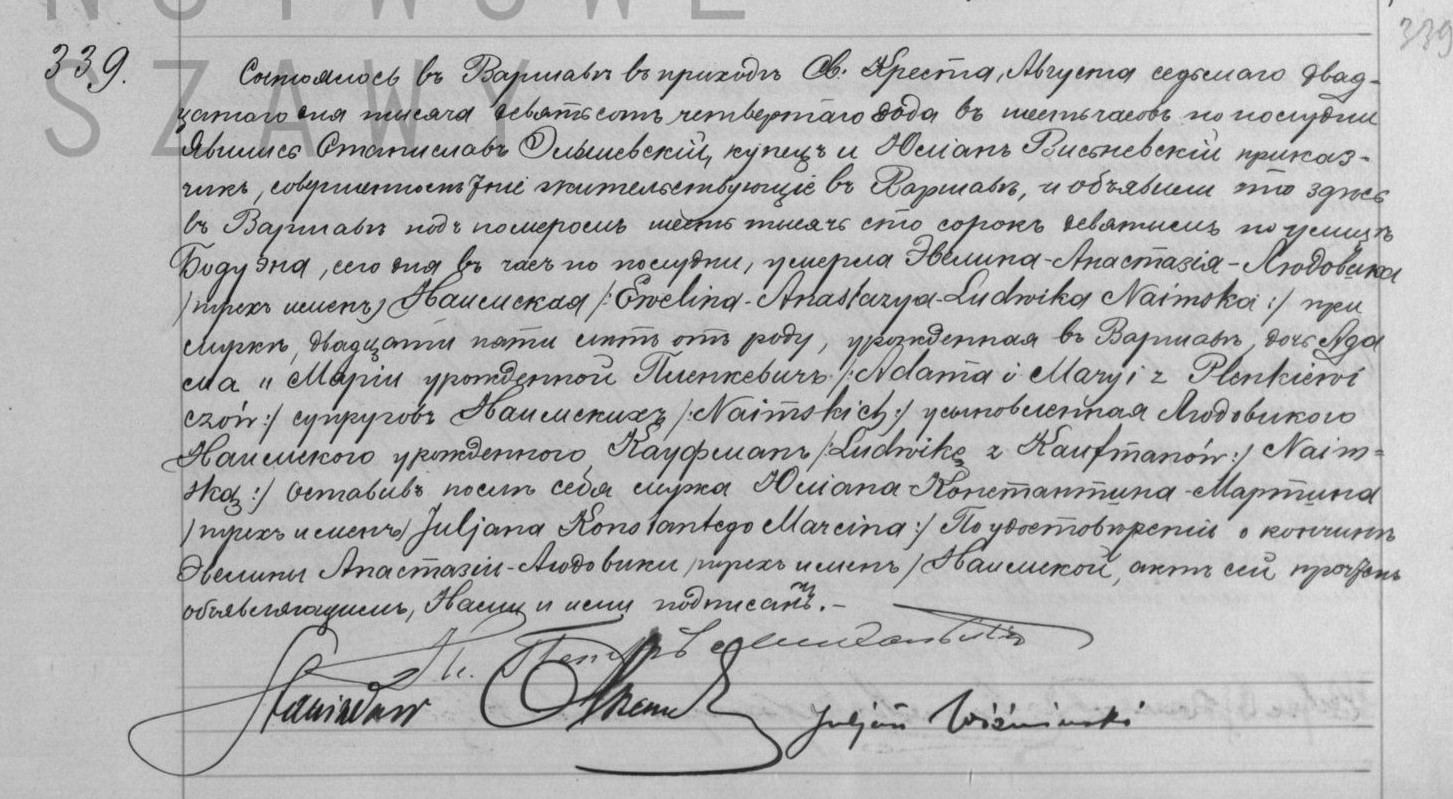 NSTWOWE
SZAWY
339.
339
Состоялось въ Варшавѣ въ приходѣ Св. Креста, Августа седьмаго двад-
цатого дня тысяча девятьсотъ четвертаго года въ шесть часовъ по полудни
Явились Станиславъ купецъ и Юліанъ Висьневскій приказ-
чикъ, совершеннолѣтніе жительствующіе въ Варшавѣ, и объявили что здѣсь
въ Варшавѣ подъ номеромъ шесть тысячъ сто сорокъ девятымъ по улицѣ
Бодуэна, сего дня въ часъ по полудни, умерла Эвелина-Анастазія-Людовика
/трехъ именъ/ Наимская /:Ewelina-Anastazya-Ludwika Naimska:/ при
мужѣ, двадцати пяти лѣтъ отъ роду, урожденная въ Варшавѣ, дочь Ада
ма и Маріи урожденной Пленкевичъ /:Adama i Maryi z Plenkiewi
czów:/ супруговъ Наимскихъ /:Naimskich:/ усыновленная Людовикою
Наимскою урожденною Кауфманъ /:Ludwikę z Kaufmanów:/ Naim=
ską:/ Оставивъ послѣ себя мужа Юліана-Константина-Мартина
/трехъ именъ/ Juljana Konstantego Marcina:/ По удостовѣреніи о кончинѣ
Эвелины Анастазіи-Людовики /трехъ именъ/ Наимской, актъ сей прочтенъ
объявляющимъ, Нами и ими подписанъ.-
Stanisław
Juljan Wiśniewski